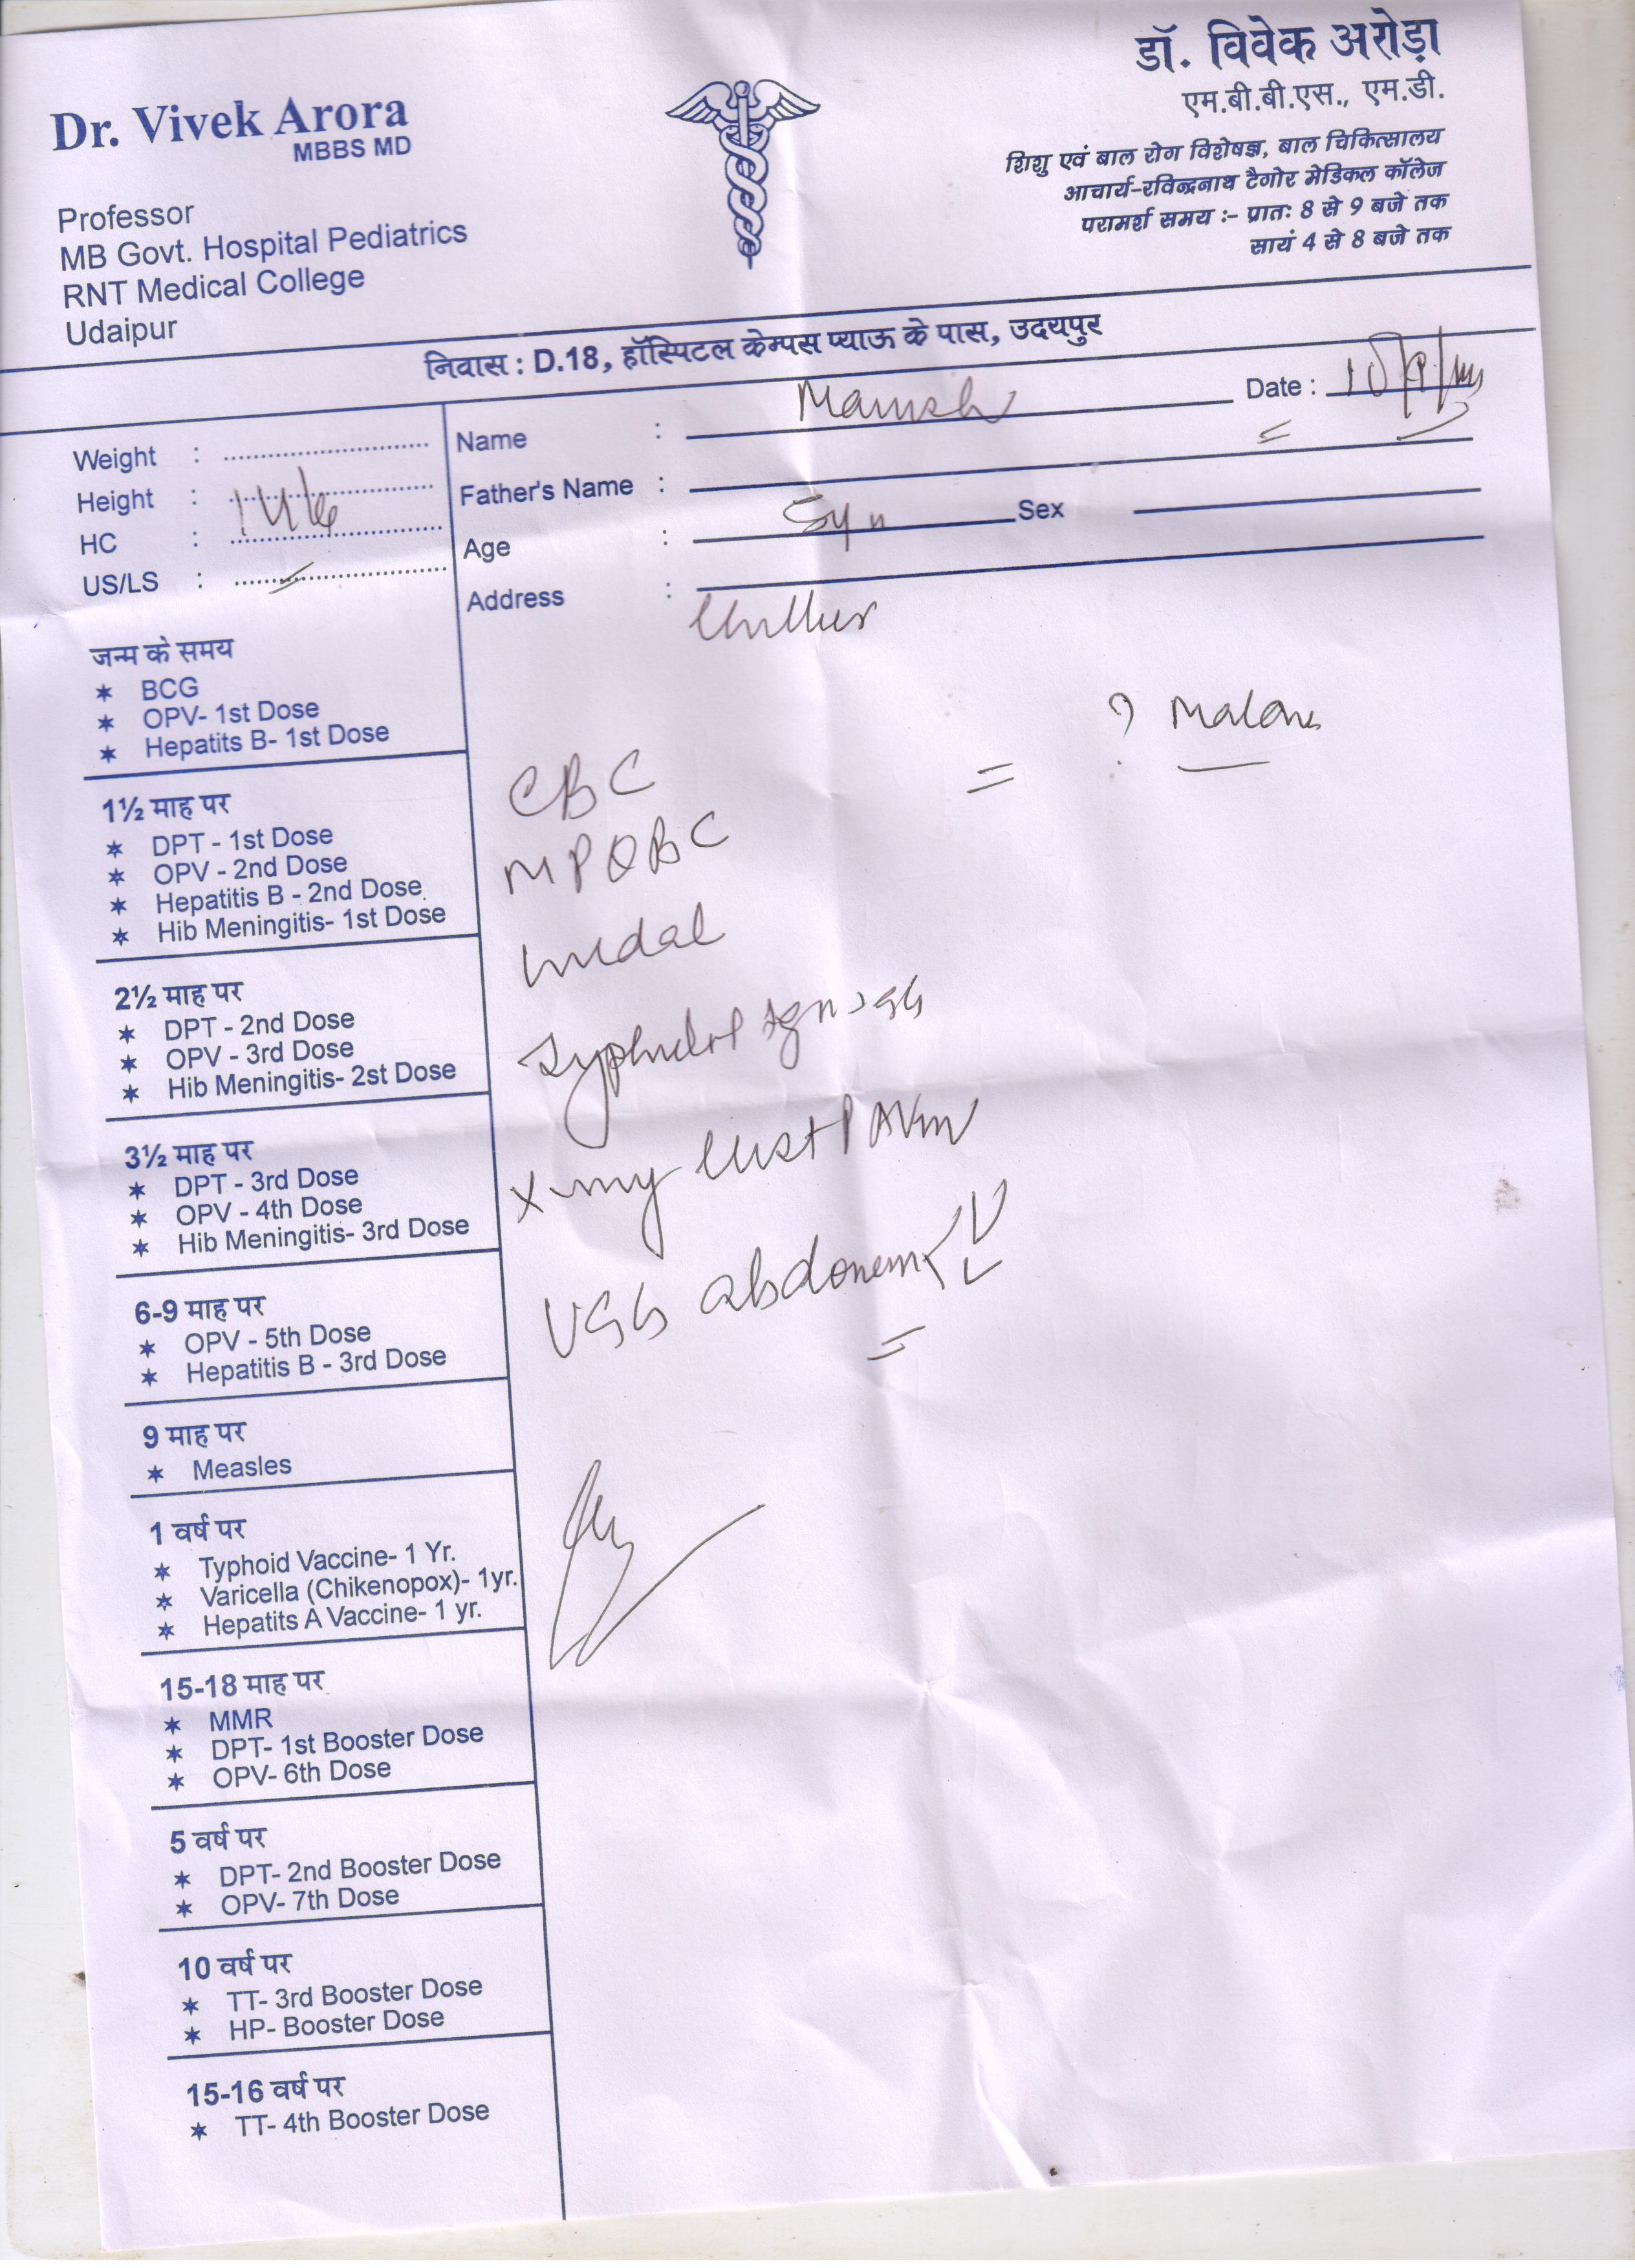 Dr. Vivek Arora
MBBS MD
Professor
MB Govt. Hospital Pediatrics
RNT Medical College
Udaipur
डॉ. विवेक अरोड़ा
एम.बी.बी.एस., एम.डी.
शिशु एवं बाल रोग विशेषज्ञ, बाल चिकित्सालय
आचार्य-रविन्द्रनाथ टैगोर मेडिकल कॉलेज
परामर्श समय :- प्रातः 8 से 9 बजे तक
सायं 4 से 8 बजे तक
निवास : D.18, हॉस्पिटल केम्पस प्याऊ के पास, उदयपुर
Date :
Weight :
Height :
HC :
US/LS :
Name : Manish
Father's Name :
Age : Sex
Address :
जन्म के समय
BCG
OPV- 1st Dose
Hepatits B- 1st Dose
1½ माह पर
DPT - 1st Dose
OPV - 2nd Dose
Hepatitis B - 2nd Dose
Hib Meningitis- 1st Dose
2½ माह पर
DPT - 2nd Dose
OPV - 3rd Dose
Hib Meningitis- 2st Dose
3½ माह पर
DPT - 3rd Dose
OPV - 4th Dose
Hib Meningitis- 3rd Dose
6-9 माह पर
OPV - 5th Dose
Hepatitis B - 3rd Dose
9 माह पर
Measles
1 वर्ष पर
Typhoid Vaccine- 1 Yr.
Varicella (Chikenopox)- 1yr.
Hepatits A Vaccine- 1 yr.
15-18 माह पर
MMR
DPT- 1st Booster Dose
OPV- 6th Dose
5 वर्ष पर
DPT- 2nd Booster Dose
OPV- 7th Dose
10 वर्ष पर
TT- 3rd Booster Dose
HP- Booster Dose
15-16 वर्ष पर
TT- 4th Booster Dose
CBC
MPQBC
widal
X-ray chest PA View
USG abdomen